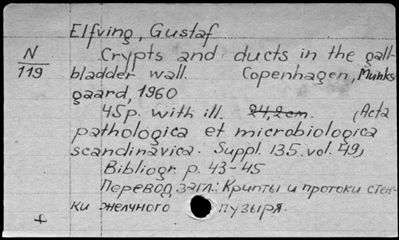 Elfving, Gustaf
N Crypts and ducts in the gall-
119 bladder wall. Copenhagen, Munks-
gaard, 1960
45p. with ill. 24,2cm. (Acta
pathologica et microbiologica
scandinavica. Suppl. 135. vol. 49)
Bibliogr. p. 43-45
Перевод загл.: Крипты и протоки стен-
ки желчного пузыря.